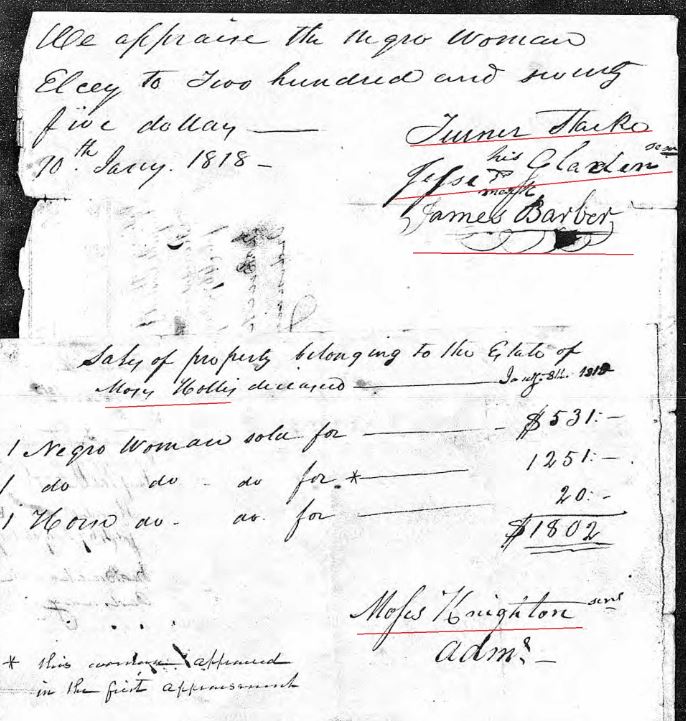 We appraise the negro Woman
Elcey to Two hundred and seventy
five dollars
10th Jany. 1818 -
Turner Starke
his
Jesse Gladden senr
mark
James Barber
Sales of property belonging to the Estate of
Moses Hollis deceased Jany. 1818
1 Negro Woman sold for $531:-
1 do do do for * 1251:-
1 Horse do. do. for 20:-
$1802
Moses Knighton senr
admr. -
* this woman appraised
in the first appraisement